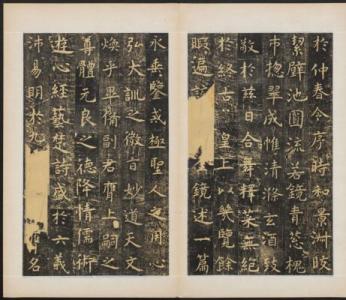 於仲春令序時和景淑皎
絜璧池圓流若鏡青葱槐
市揔翠成帷清滌玄酒致
敬於兹日合舞釋菜無絕
於終古皇上以几覽餘
暇遍鏡述一篇
永垂鑒戒極聖人之用心
弘大訓之微旨妙道天文
煥乎畢備副君膺上嗣之
尊體元良之德降情儒術
遊心經藝楚詩盛於六義
沛易明於九名